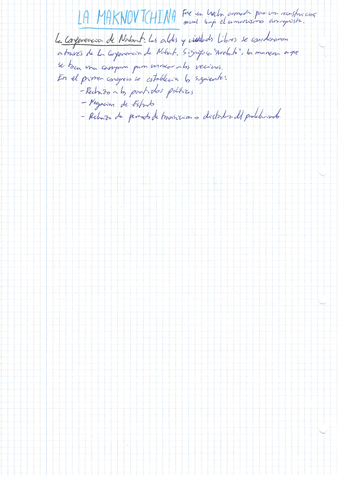 LA MAKNOVTCHINA Fue un
social bajo el anarquista.
La Confederacion de Nabat: Las aldeas y ciudades Libres se coordinaron
a través de la Confederacion de Nabat. Significa "Arrebato": la manera que
se toca una campana para convocar a los vecinos.
En el primer congreso se establecia lo siguiente:
- Rechazo a los partidos políticos
- Negacion de Estado
- Rechazo de periodo de transicion o dictadura del proletariado